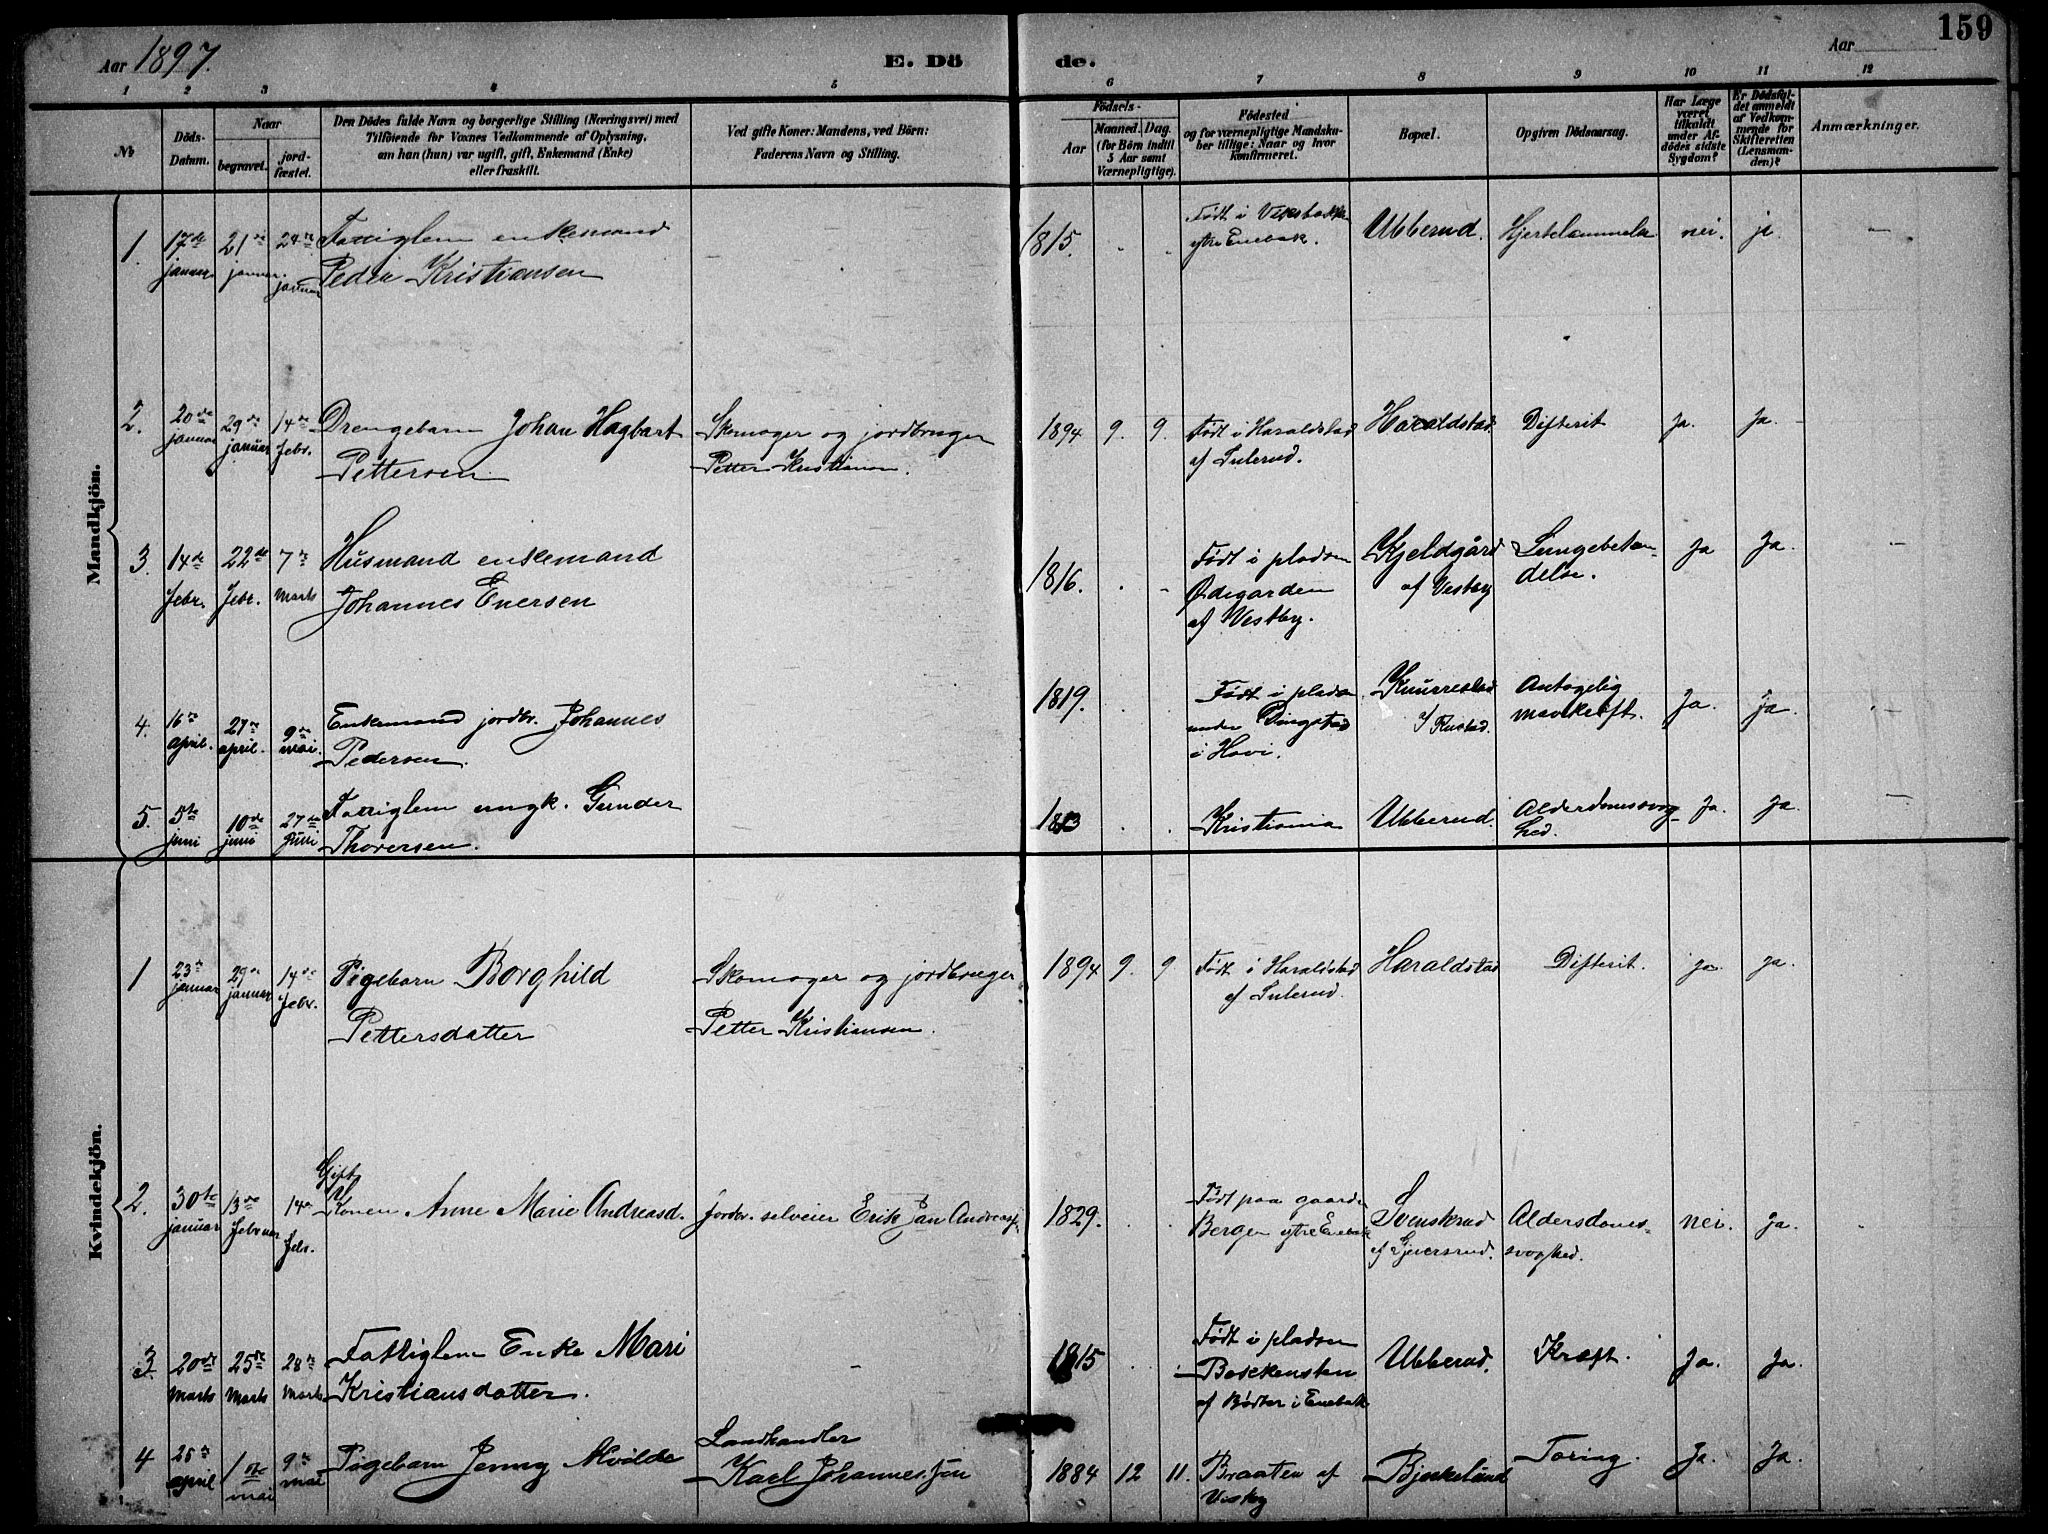 Aar 1897.
E. Dö
de.
Aar
159
1 2 3 4 5 6 7 8 9 10 11 12
No
Döds-
Datum.
Naar
begravet.
jord-
fæstet.
Den Dödes fulde Navn og borgerlige Stilling (Næringsvei) med
Tilföiende for Voxnes Vedkommende af Oplysning,
om han (hun) var ugift, gift, Enkemand (Enke)
eller fraskilt.
Ved gifte Koner: Mandens, ved Börn:
Faderens Navn og Stilling.
Födsels-
Aar
Maaned. Dag.
(for Börn indtil
3 Aar samt
Værnepligtige).
Födested
og for værnepligtige Mandska-
ber tillige: Naar og hvor
konfirmeret.
Bopæl.
Opgiven Dödsaarsag.
Har Læge
været
tilkaldt
under Af-
dödes sidste
Sygdom?
Er Dödsfal-
det anmeldt
af Vedkom-
mende for
Skifteretten
(Lensman-
den)?
Anmærkninger.
Mandkjön.
1.
17de
januar
21de
januar.
24de
januar
Fattiglem enkemand
Peder Kristiansen
1815.
Født i
ytre Enebak.
Ubberud.
Hjertelammelse
nei.
ja
2.
20de
januar
29de
januar
14de
febr.
Drengebarn Johan Hagbart
Pettersen
Skomager og jordbruger
Petter Kristiansen.
1894 9. 9.
Født i Haraldstad
af Sulerud.
Haraldstad.
Difterit
ja.
ja.
3.
14de
febr.
22de
febr.
7de
marts
Husmand enkemand
Johannes Enersen
1816.
Født i pladsen
Ødegarden
af Vestby.
Kjeldgård
af Vestby
Lungebetæn-
delse.
ja
ja.
4.
16de
april.
27de
april.
9de
mai.
Enkemand jordbr. Johannes
Pedersen.
1819.
Født i pladsen
under Dingstad
i Hovi.
Knurrestad
/ Rustad.
Antagelig
mavekræft.
ja.
ja.
5.
5te
juni
10de
juni
27de
juni
Fattiglem ungk. Gunder
Thoversen.
1813
Kristiania
Ubberud.
Alderdomssvag-
hed.
ja.
ja.
Kvindekjön.
1
23de
januar
29de
januar
14de
febr.
Pigebarn Borghild
Pettersdatter
Skomager og jordbruger
Petter Kristiansen.
1894 9. 9
Født i Haraldstad
af Sulerud.
Haraldstad
Difterit.
ja.
ja.
2.
30te
januar
13de
februar
14de
febr.
Gift
Konen Anne Marie Andreasd.
jordbr. selveier Erik Jan Andreass.
1829.
Født paa gaarden
Bergen ytre Enebak
Svenskrud
af Gjeversrud.
Aldersdoms-
svaghed.
nei.
ja.
3.
20de
marts
25de
marts
28de
marts
Fattiglem Enke Mari
Kristiansdatter.
1815
Født i pladsen
Bækkensten
af Bødter i Enebak
Ubberud.
Kræft.
ja.
ja.
4
25de
april
1ste
mai
9de
mai
Pigebarn Jenny Alvilde
Landhandler
Karl Johannessøn
1884 12 11.
Braaten af
Vestby
Bjerkelund
Tæring.
ja.
ja.